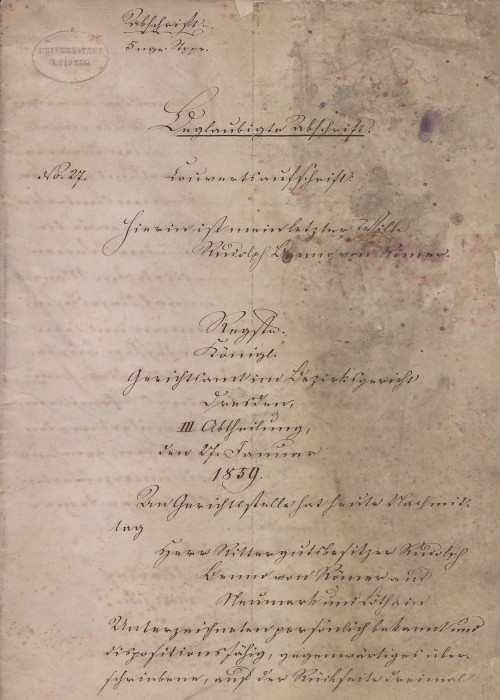 Abschrift.
UNIVERSITÄT
LEIPZIG
Beglaubigte Abschrift.
No. 27.
Couvertsaufschrift:
Hierin ist mein letzter Wille
Rudolph Benno von Römer.
Regstr.
Königl.
Gerichtsamt im Bezirksgericht
Dresden,
III Abtheilung,
den 27. Januar
1859.
An Gerichtsstelle hat heute Nachmit-
tag
Herr Rittergutsbesitzer Rudolph
Benno von Römer auf
Neumark und Löthain
Unterzeichneten persönlich bekannt und
dispositionsfähig, gegenwärtiges über-
schriebene, auf der Rückseite dreimal